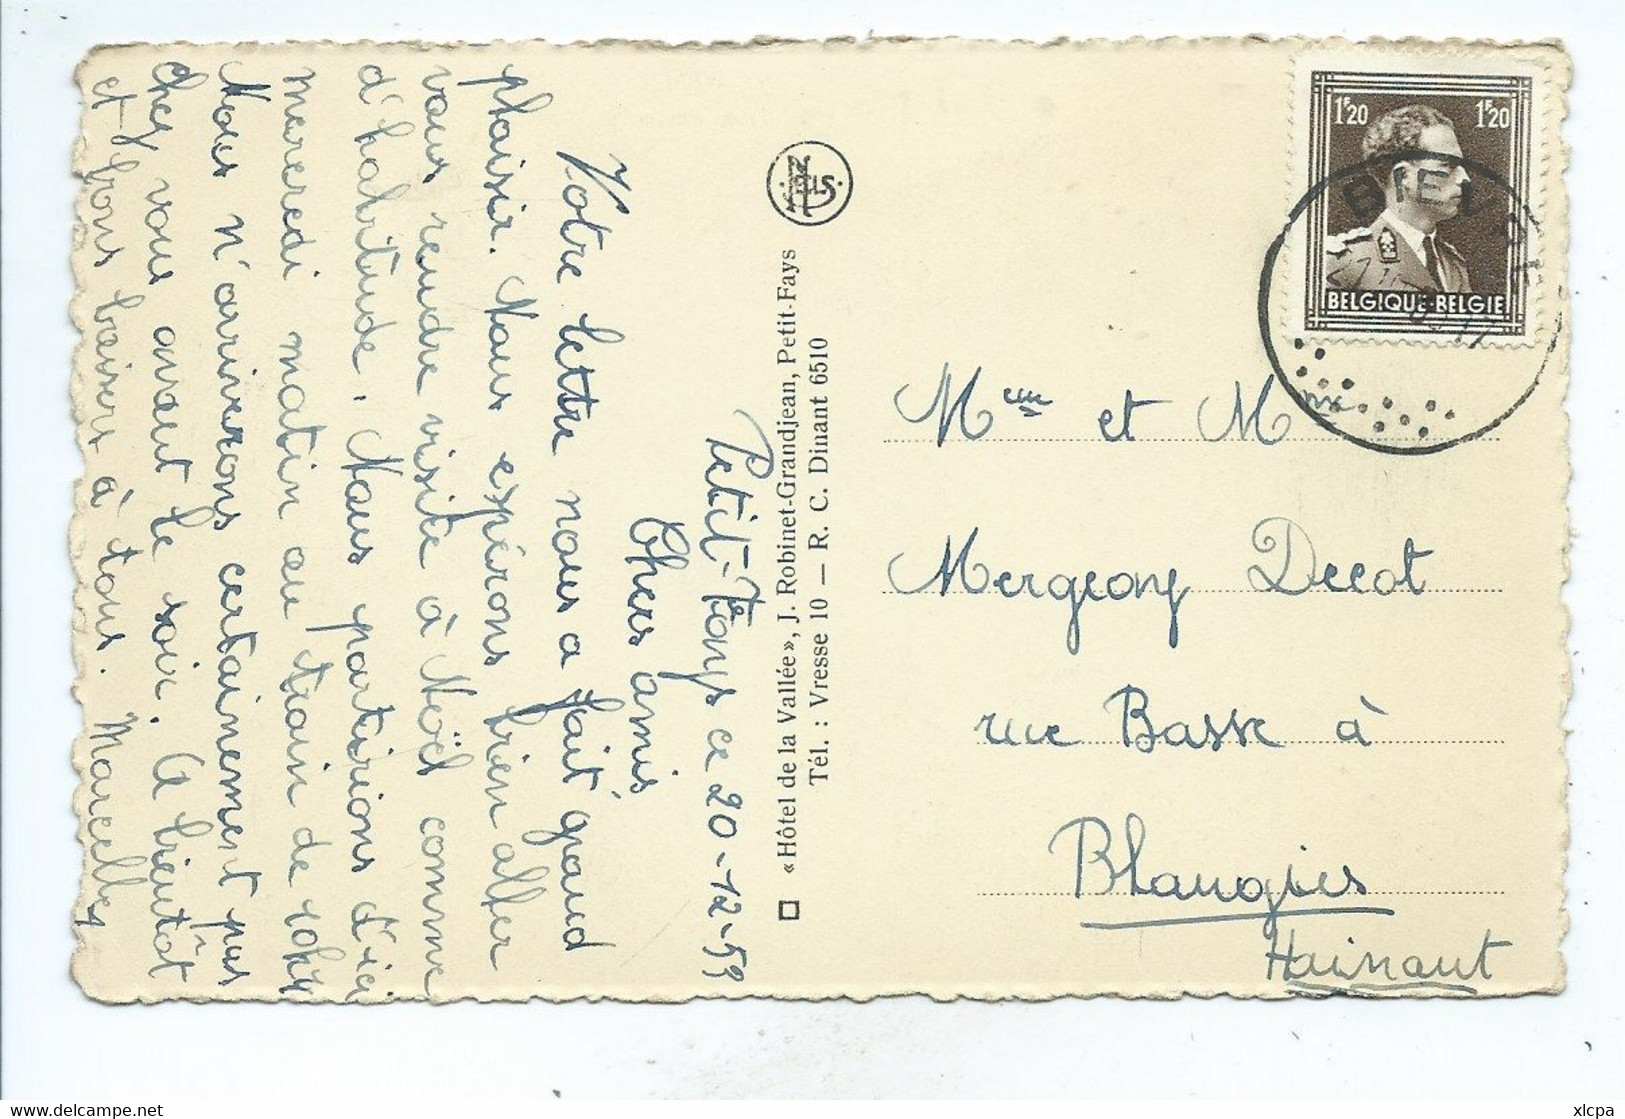 Petit-Fays ce 20-12-59
Chers amis
Votre lettre nous a fait grand
plaisir. Nous espérons bien aller
vous rendre visite à Noël comme
d'habitude. Nous partirons d'ici
mercredi matin au train de 10h
Nous n'arriverons certainement pas
chez vous avant le soir. A bientôt
et bons baisers à tous. Marcelle
NELS
« Hôtel de la Vallée », J. Robinet-Grandjean, Petit-Fays
Tél. : Vresse 10 — R. C. Dinant 6510
1F20 1F20
BELGIQUE·BELGIE
BIE
Mme et M
Mergeay Decot
rue Basse à
Blaugies
Hainaut
xlcpa